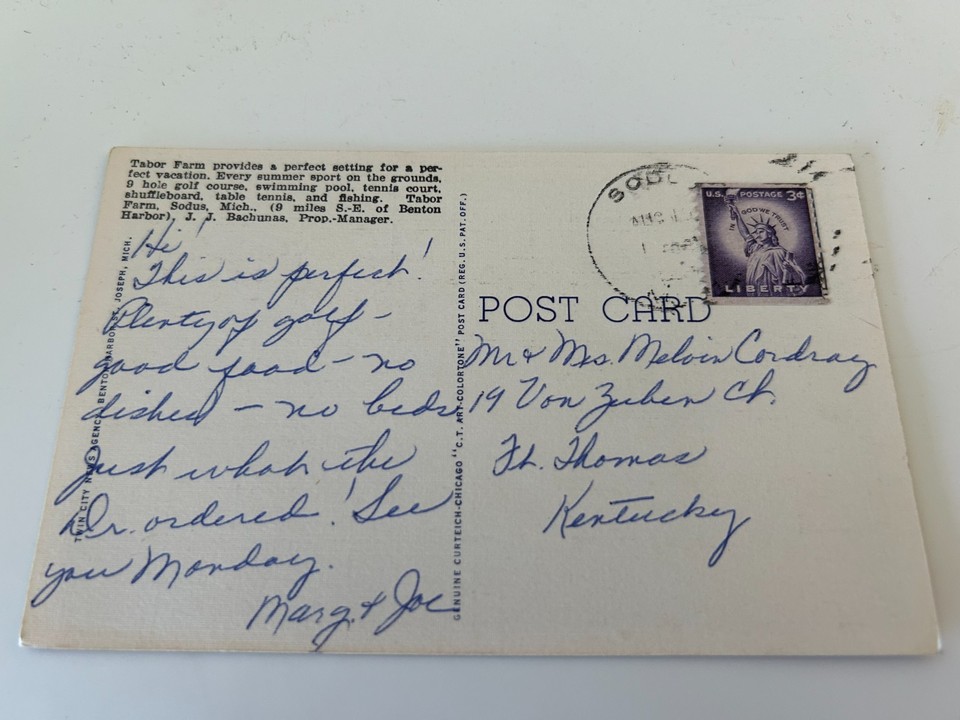 Tabor Farm provides a perfect setting for a per-
fect vacation. Every summer sport on the grounds,
9 hole golf course, swimming pool, tennis court,
shuffleboard, table tennis, and fishing. Tabor
Farm, Sodus, Mich., (9 miles S.-E. of Benton
Harbor), J. J. Bachunas, Prop.-Manager.
Hi!
This is perfect!
Plenty of golf -
good food - no
dishes - no beds
Just what the
Dr. ordered! See
you Monday.
Marg. & Joe
TWIN CITY NEWS AGENCY, BENTON HARBOR-ST. JOSEPH, MICH.
GENUINE CURTEICH-CHICAGO "C.T. ART-COLORTONE" POST CARD (REG. U.S. PAT. OFF.)
U.S. POSTAGE 3¢
IN GOD WE TRUST
LIBERTY
POST CARD
Mr & Mrs. Melvin Cordray
19 Von Zuben Ct.
Ft. Thomas
Kentucky